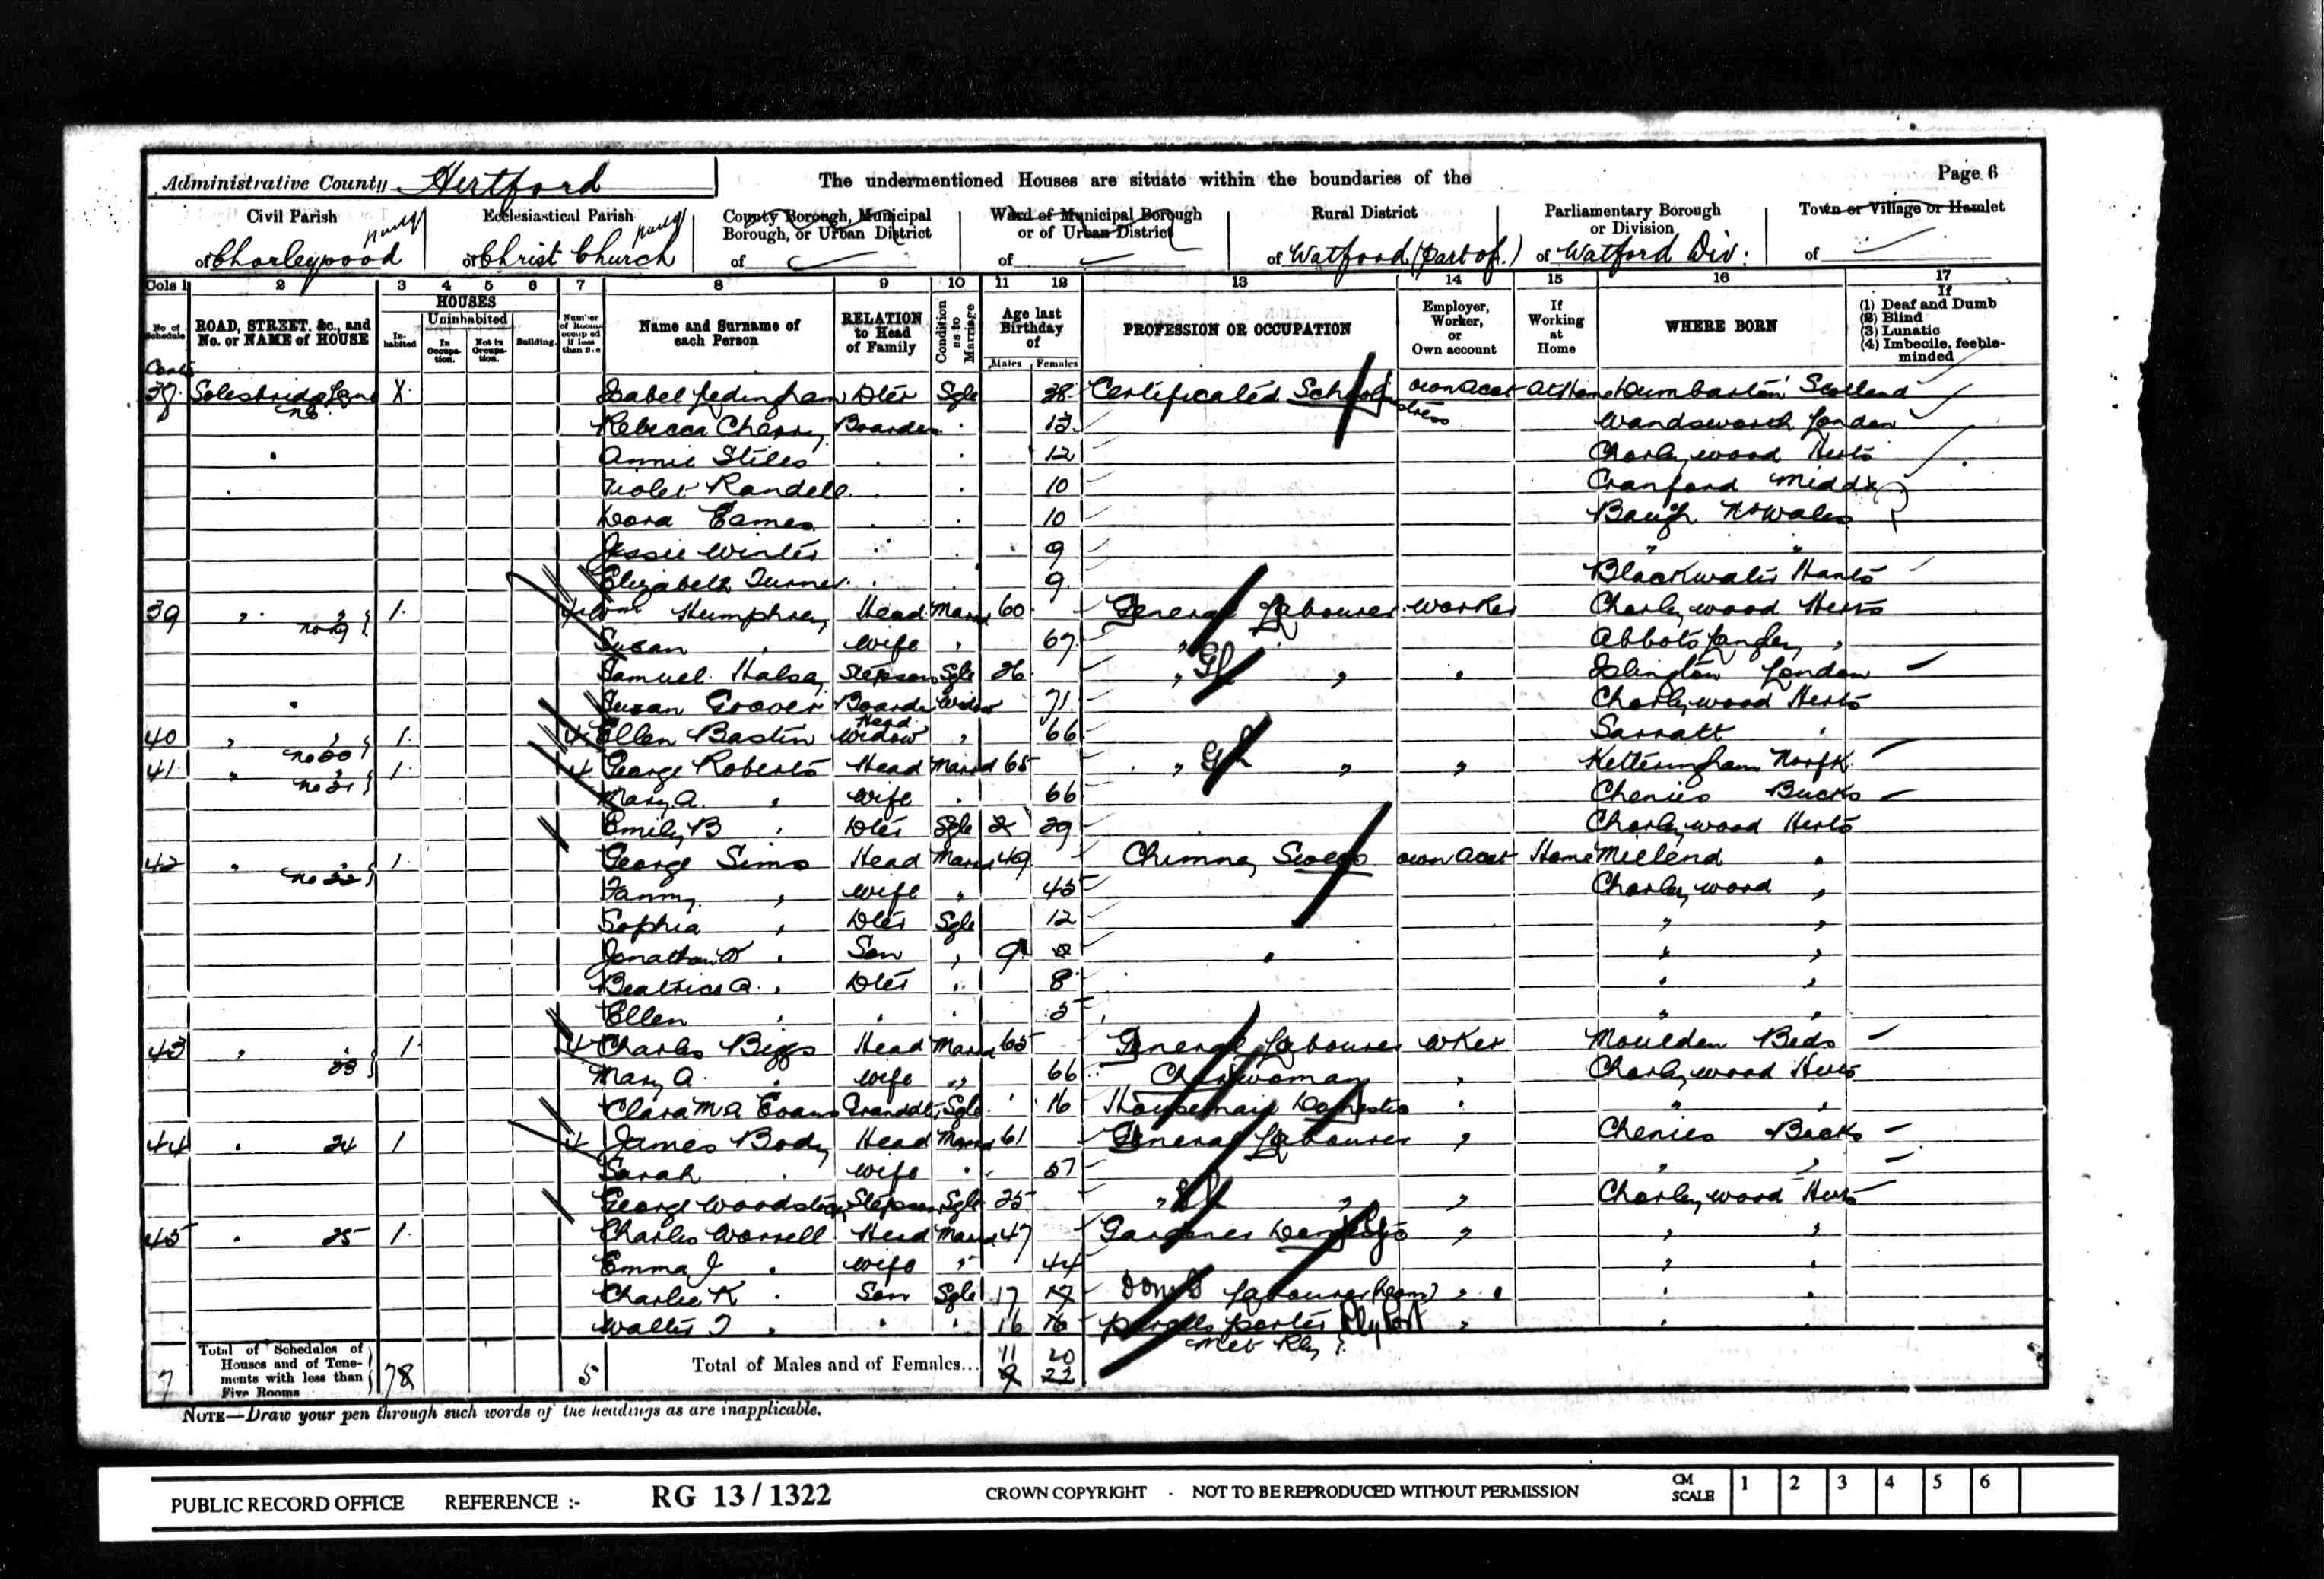 Administrative County Hertford
The undermentioned Houses are situate within the boundaries of the
Page 6
Civil Parish
of Chorleywood party
Ecclesiastical Parish
of Christ Church party
County Borough, Municipal Borough, or Urban District
of
Ward of Municipal Borough or of Urban District
of
Rural District
of Watford (part of.)
Parliamentary Borough or Division
of Watford Div:
Town or Village or Hamlet
of
Cols 1 2 3 4 5 6 7 8 9 10 11 12 13 14 15 16 17
No of Schedule
ROAD, STREET, &c., and No. or NAME of HOUSE
HOUSES
Inhabited
Uninhabited
In Occupation.
Not in Occupation.
Building.
Number of Rooms occupied if less than five
Name and Surname of each Person
RELATION to Head of Family
Condition as to Marriage
Age last Birthday of
Males Females
PROFESSION OR OCCUPATION
Employer, Worker, or Own account
If Working at Home
WHERE BORN
If
(1) Deaf and Dumb
(2) Blind
(3) Lunatic
(4) Imbecile, feeble-minded
Solesbridge Lane X. Isabel Ledingham Dter Sgle 38 Certificated Schoolmistress own acct At Home Dumbarton Scotland
Rebecca Cherry Boarder 13 Wandsworth London
Annie Stiles 12 Chorleywood Herts
Violet Randell 10 Cranford Middx
Dora Eames 10 No Wales
Jessie Winter 9 " "
Elizabeth Turner 9 Blackwater Hants
39 " " no 19 1 4 Wm Humphrey Head Marrd 60 General Labourer Worker Chorleywood Herts
Susan " Wife " 67 Abbots Langley "
Samuel Halsey Stepson Sgle 26 " Gl " " Islington London
Susan Groover Boarder Widow 71 Chorleywood Herts
40 " " 1 4 Ellen Bastin Head Widow " 66 Sarratt "
41 " " no 21 1 4 George Roberts Head Marrd 65 " Gl " " Ketteringham Norfk
Mary A. " Wife " 66 Chenies Bucks
Emily B " Dter Sgle 29 Chorleywood Herts
42 " " no 22 1 George Sims Head Marrd 49 Chimney Sweep own acct Home Millend "
Fanny " Wife " 45 Chorleywood "
Sophia " Dter Sgle 12 " "
Jonathan W " Son " 9 " "
Beatrice A. " Dter " 8 " "
Ellen " " " 5 " "
43 " " 23 1 4 Charles Biggs Head Marrd 65 General Labourer Wker Moulden Beds
Mary A. " Wife " 66 Charwoman " Chorleywood Herts
Clara M A Evans Granddtr Sgle 16 Housemaid Domestic " " "
44 " 24 1 4 James Body Head Marrd 61 General Labourer " Chenies Bucks
Sarah " Wife " 57 " "
George Woodstock Stepson Sgle 25 " " " Chorleywood Herts
45 " 25 1 Charles Worrell Head Marrd 47 Gardener " " "
Emma J " Wife " 44 " "
Charlie K " Son Sgle 17 17 Labourer " " "
Walter T " " " 16 16 parcells porter Rly Port " " "
Met Rly
7
Total of Schedules of Houses and of Tenements with less than Five Rooms
78
5
Total of Males and of Females...
11 20
9 22
NOTE—Draw your pen through such words of the headings as are inapplicable.
PUBLIC RECORD OFFICE REFERENCE :- RG 13 / 1322 CROWN COPYRIGHT - NOT TO BE REPRODUCED WITHOUT PERMISSION CM SCALE 1 2 3 4 5 6